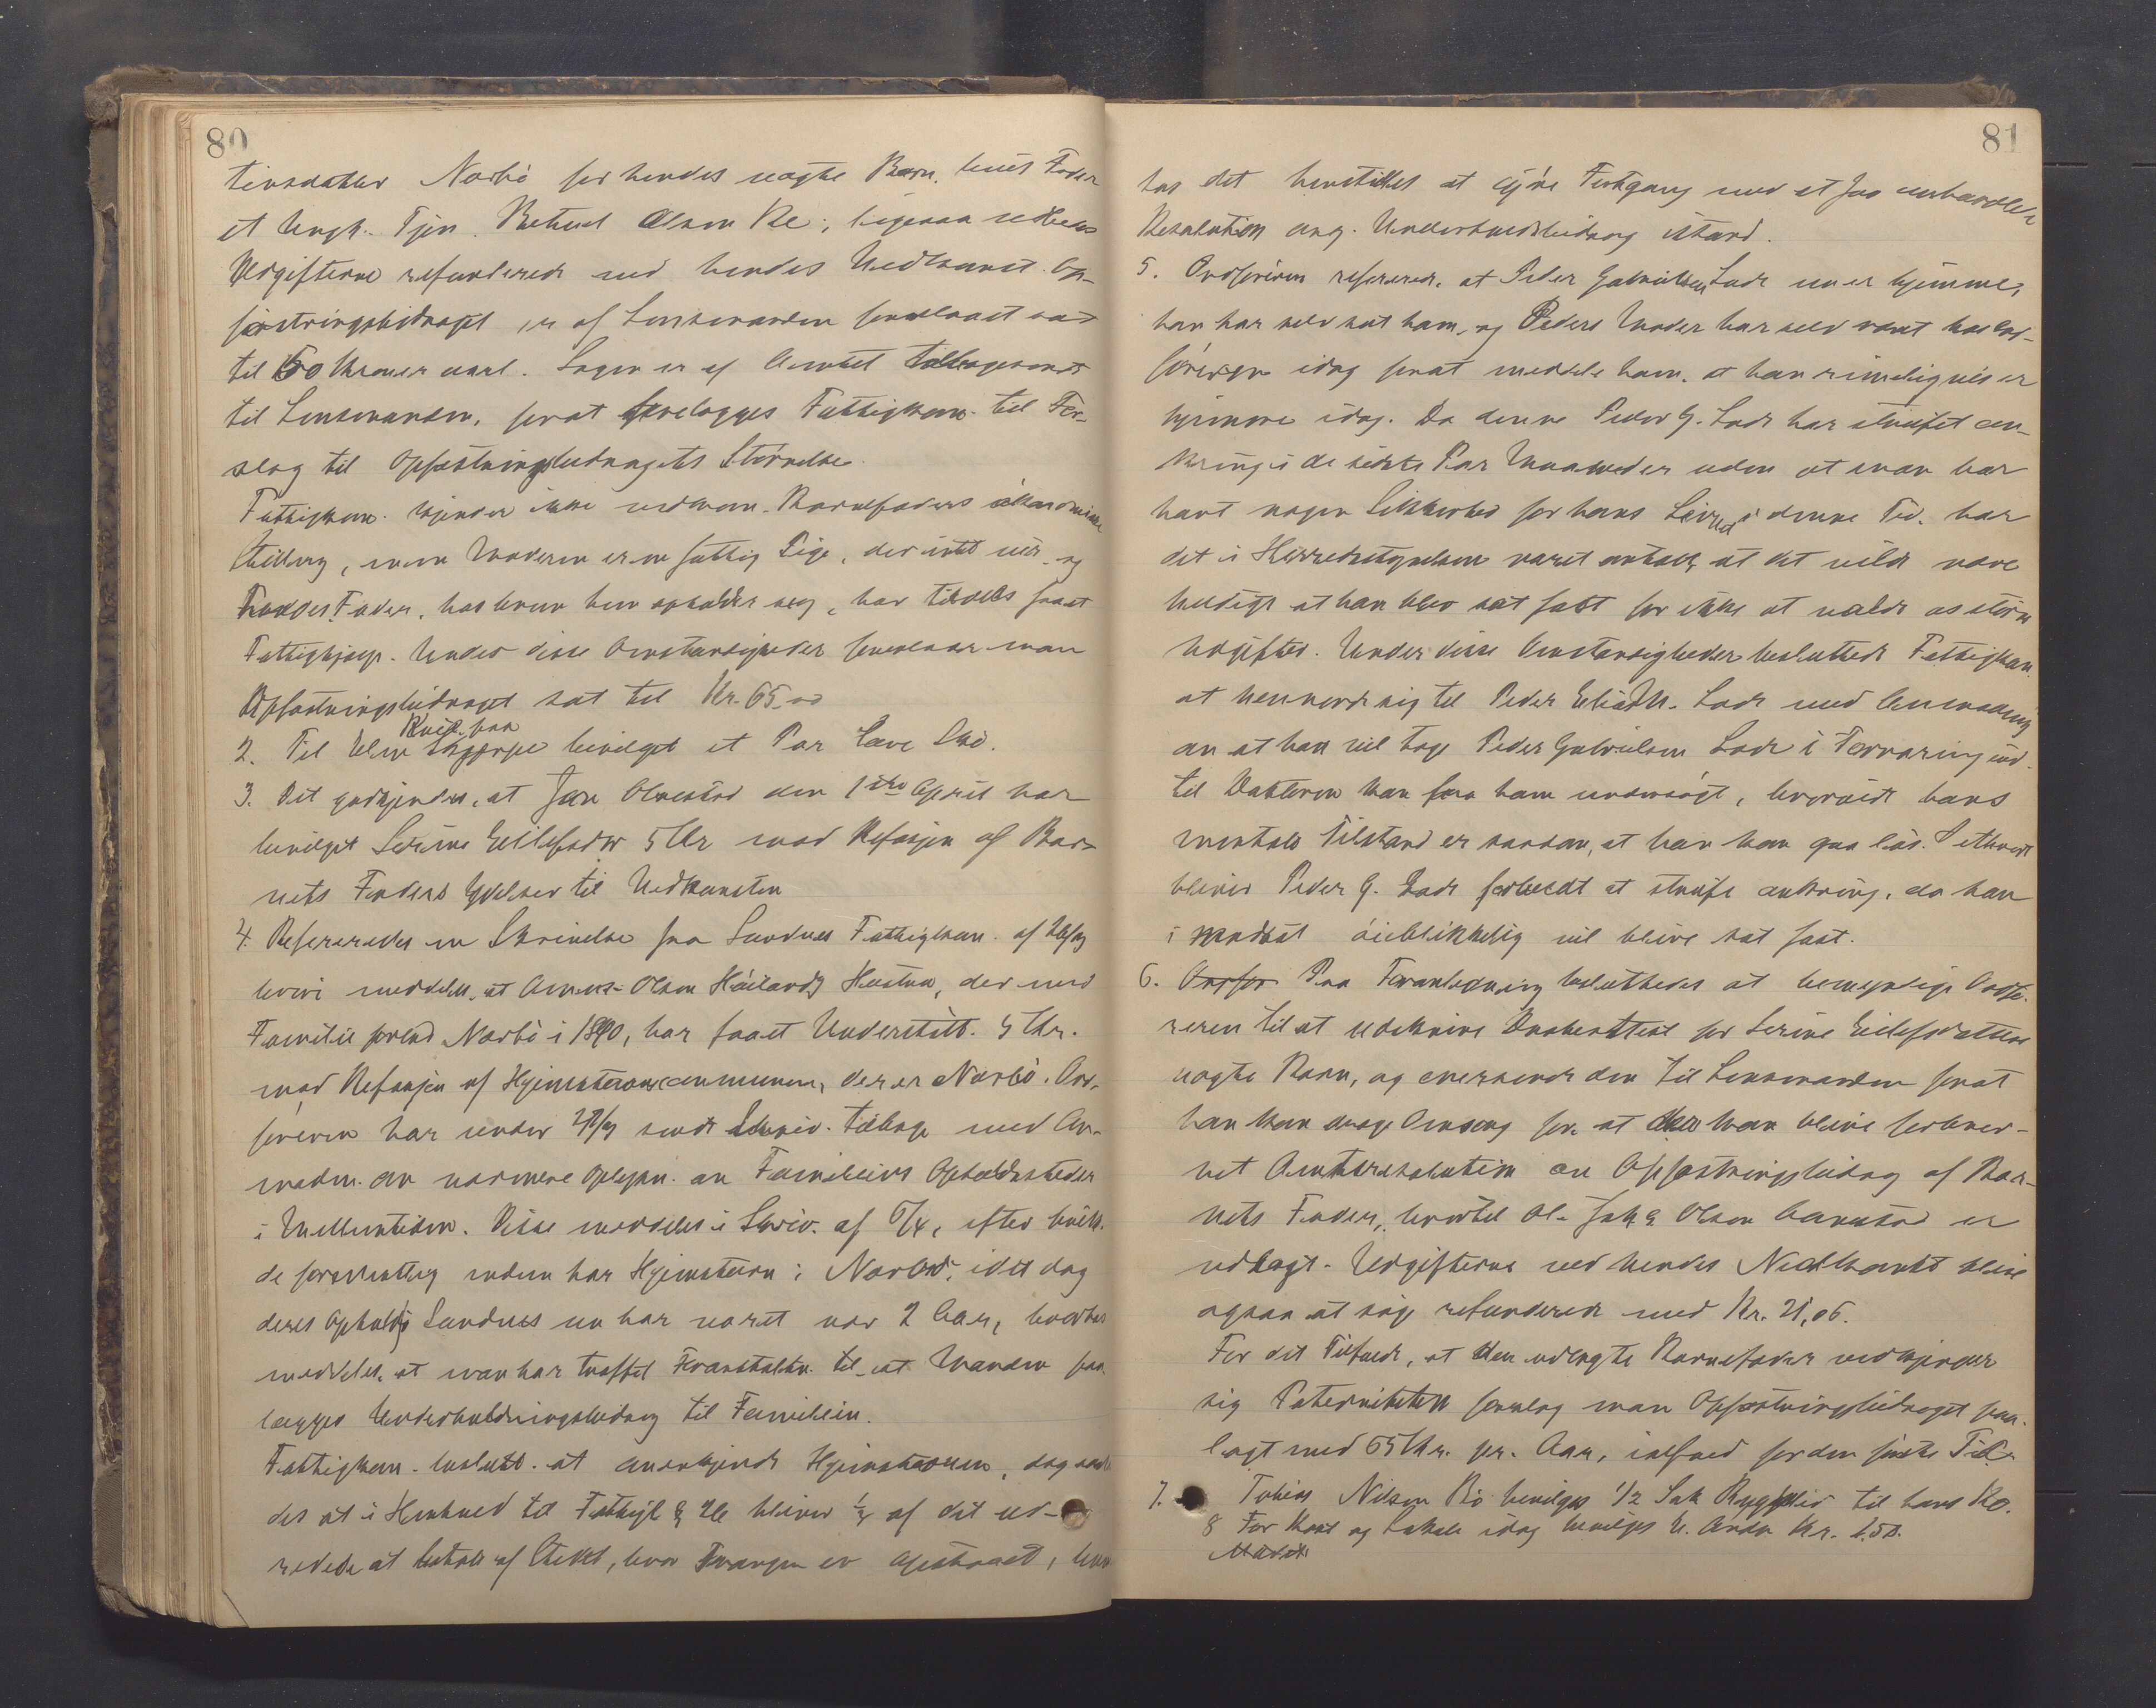 80
tinsdatter Narbö for hendes uægte Barn, hvis Fader
et Ungk. Tjen. Betuel Olsen Re; ligesaa
Udgifterne refunderede ved hendes Nedkomst. Op-
fostringsbidraget er af Lensmanden foreslaaet sat
til 50 Kroner aarl. Sagen er af Amtet tilbagesendt
til Lensmanden, forat forelægges Fattigkom. til For-
slag til Opfostringsbidragets Störrelse.
Fattigkom. kjender ikke vedkom. Barnefaders ökonomiske
Stilling, men Moderen er en fattig Pige, der intet eier og
hendes Fader, hos hvem hun opholder seg, har tildels faaet
Fattighjælp. Under disse Omstændigheder foreslaar man
Opfostringsbidraget sat til Kr. 65,00
2. Til Elen bevilget et Par Læve Sko.
3. Det godkjendes, at Jan Obrestad den 1ste April har
bevilget Serine Eilefsdtr 5 Kr mod Refusjon af Bar-
nets Faders Ydelser til Nedkomsten
4. Refereredes en Skrivelse fra Sandnes Fattigkom. af
hvori meddeles, at Olsen Höilands Hustru, der med
Familie forlod Narbö i 1890, har faaet Understött. 5 Kr.
mod Refusjon af Hjemstavnscommunen, der er Narbö. Ord-
föreren har under sendt Skriv. tilbage med An-
modn. om nærmere Oplysn. om Familiens Opholdssteder
i Mellemtiden. Disse meddeles i Skriv. af 6/4, efter hvilk.
de forsaavidt endnu har Hjemstavn i Narbö, idet dog
deres Ophold i Sandnes nu har været nær 2 Aar, hvorhos
meddeles, at man har truffet Foranstaltn. til at Manden paa
lægges Underholdningsbidrag til Familien.
Fattigkom. beslutt. at anerkjende Hjemstavnen, dog saale
des at i Henhold til Fattigl § bliver 1/4 af det ud-
redede at betale af Stedet, hvor Trangen er opstaaet, hvor
81
hos det henstilles at gjöre Fortgang med at faa
Resolution ang. Underholdsbidrag istand.
5. Ordföreren refererede, at Peder Gabrielsen Lode nu er hjemme,
han har selv seet ham, og Peders Moder har selv været hos Ord-
föreren idag forat meddele ham, at han rimeligvis er
hjemme idag. Da denne Peder G. Lode har streifet om-
kring i de sidste Par Maaneder uden at man har
havt nogen Sikkerhed for hans Levned i denne Tid, har
det i Herredsstyrelsen været antaget at det vilde være
heldigt at han blev sat fast for ikke at volde os större
Udgifter. Under disse Omstændigheder besluttede Fattigkom.
at henvende sig til Peder Lode med Anmodning
om at han vil tage Peder Gabrielsen Lode i Forvaring ind-
til Doktoren kan faa ham undersögt, hvorvidt hans
mentale Tilstand er saadan, at han kan gaa lös. I ethvert
bliver Peder G. Lode forbudt at streife omkring, da han
i modsat öieblikkelig vil blive sat fast.
6. Paa Foranledning besluttedes at bemyndige Ordfö-
reren til at udskrive Daabsattest for Serine Eilefsdatters
uægte Barn, og oversende den til Lensmanden forat
han kan drage Omsorg for, at der kan blive forhver-
vet Amtsresolution om Opfostringsbidrag af Bar-
nets Fader, hvortil Olsen Aarestad er
udlagt. Udgifterne ved hendes Nedkomst blive
ogsaa at söge refunderede med Kr. 21,06.
For det Tilfælde, at den udlagte Barnefader vedkjender
sig Paterniteten foreslog man Opfostringsbidraget paa-
lagt med 65 Kr. pr. Aar, ialfald for den förste Tid.
7. Tobias Nilsen Bö bevilges 1/2 Sæk Rugmel til hans
8 For Kost og Lokale idag bevilges Kr.